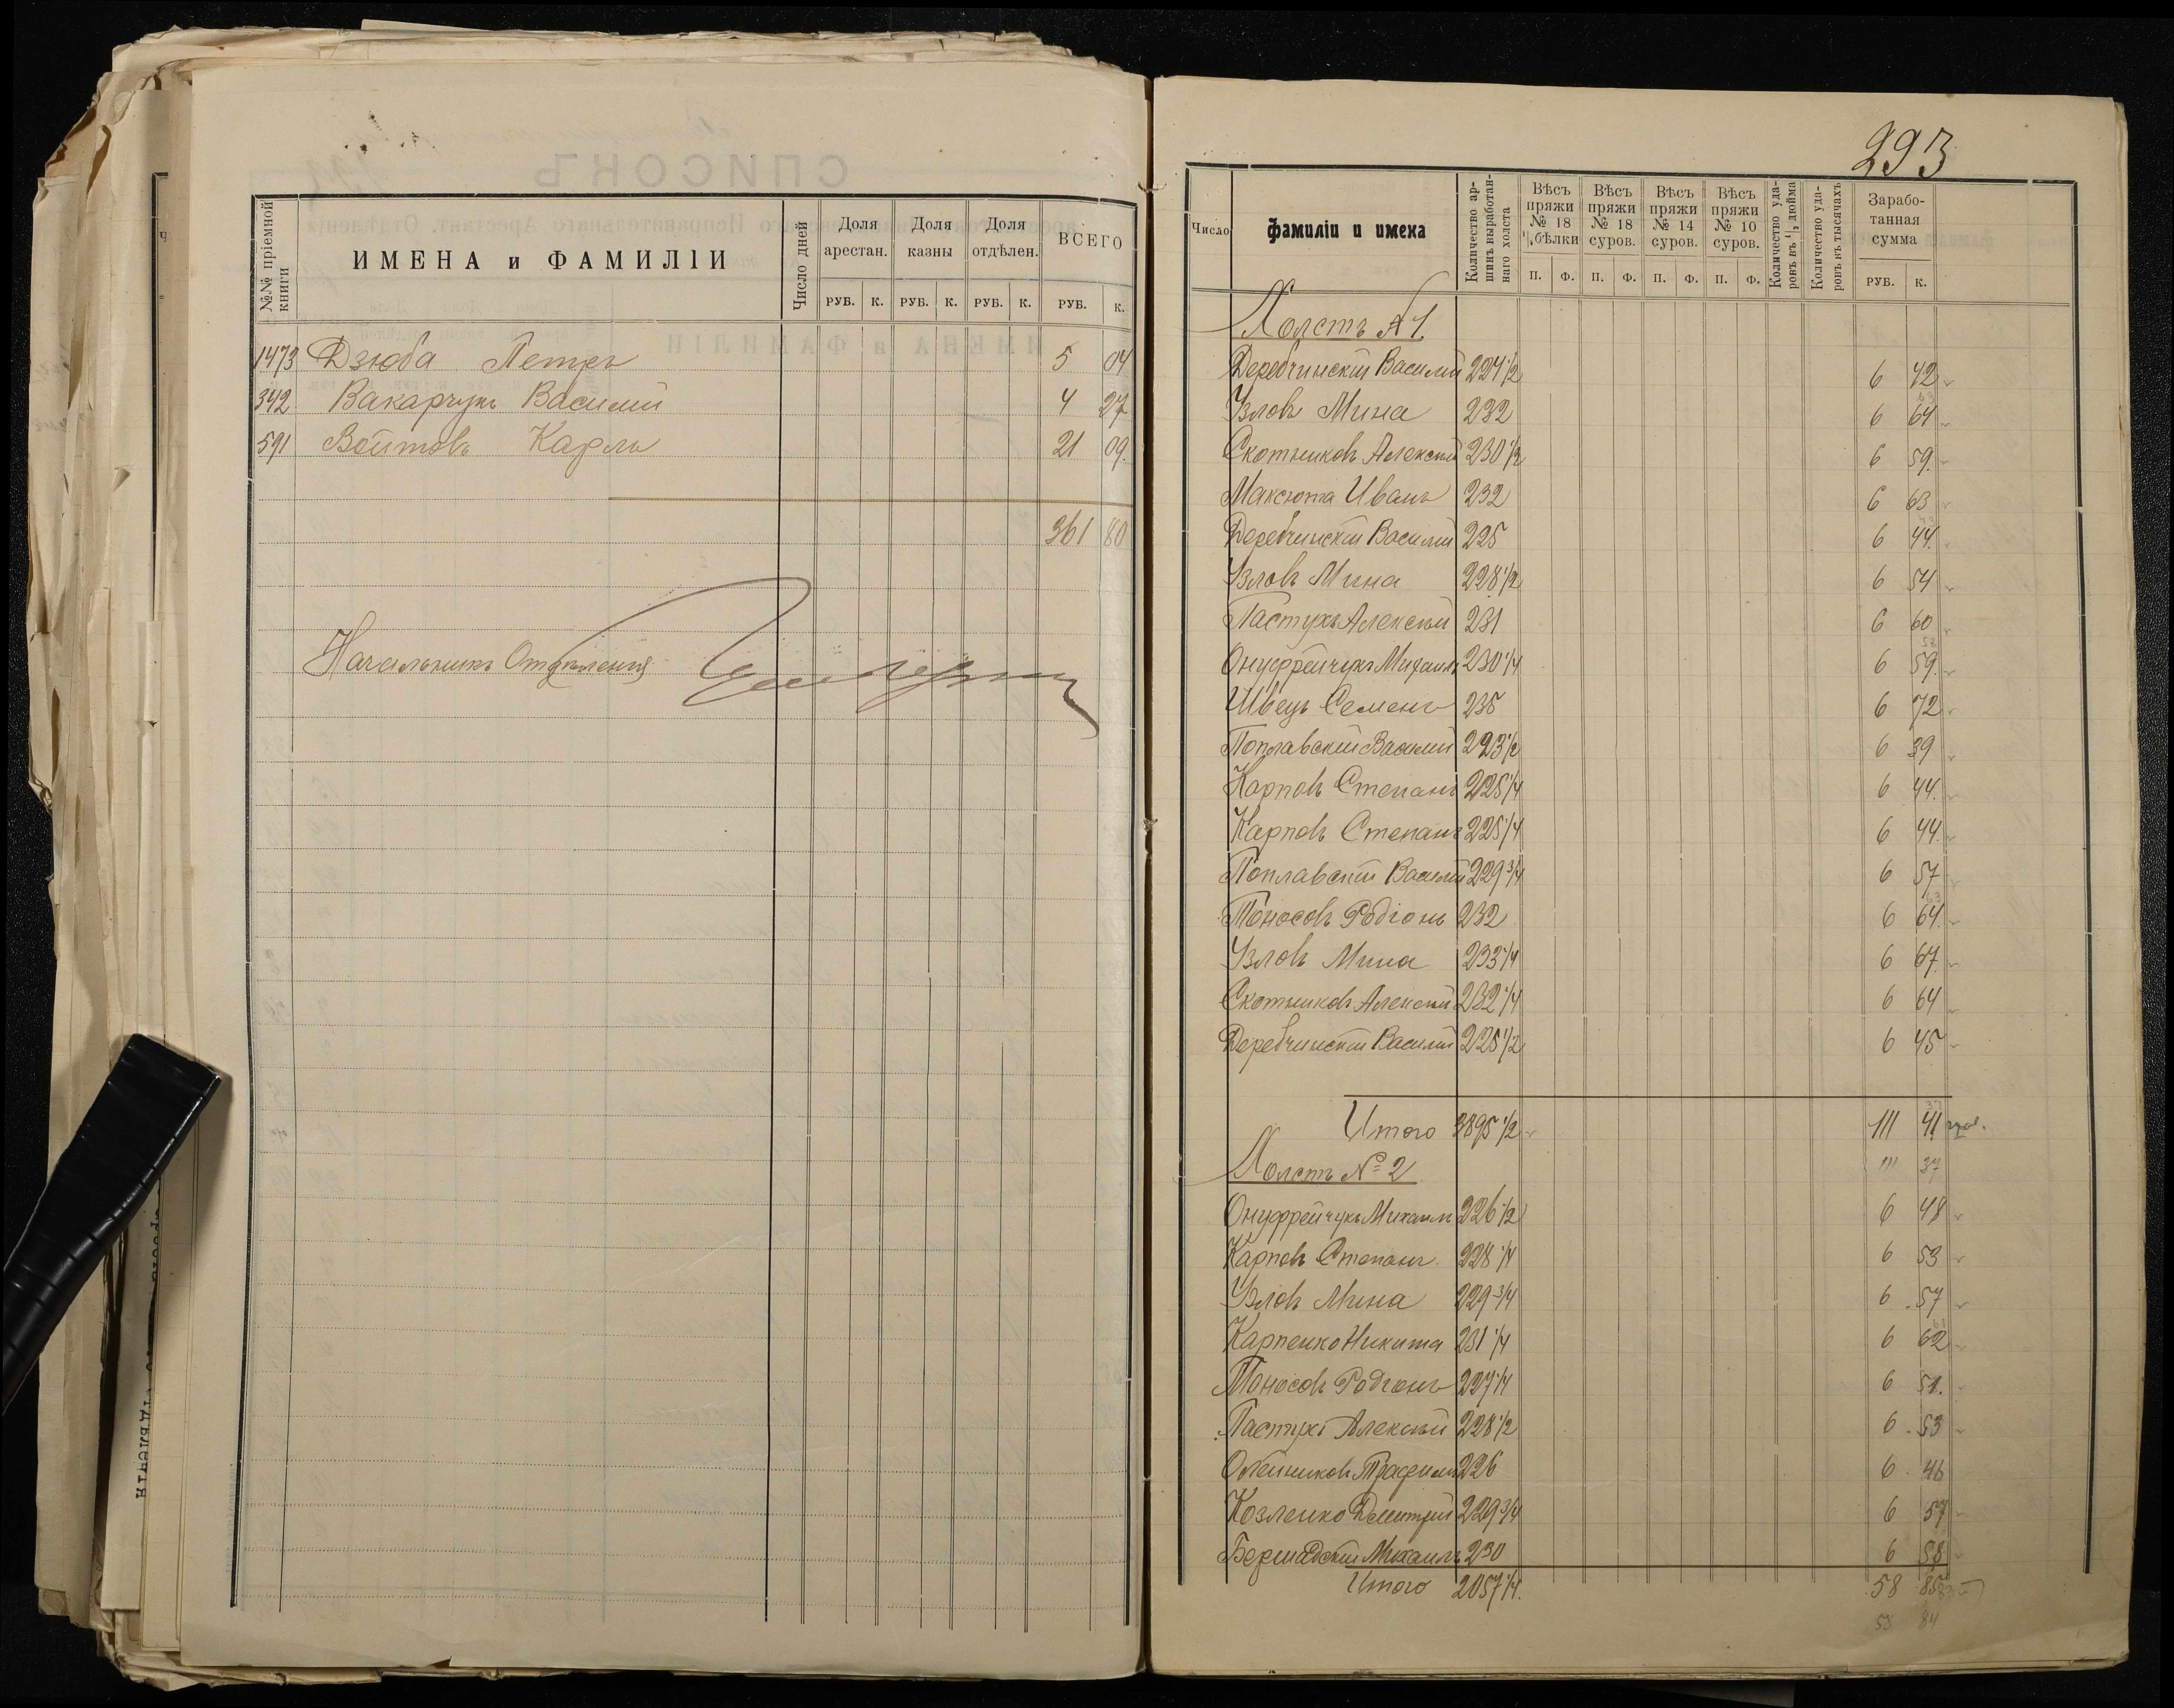 №№ пріемной книги
ИМЕНА и ФАМИЛІИ
Число дней
Доля арестан.
Доля казны
Доля отдѣлен.
ВСЕГО
РУБ. К. РУБ. К. РУБ. К. РУБ. К.
1473 Дзюба Петръ 5 04
342 Вакарчукъ Василій 4 27
591 Войтовъ Карлъ 21 09.
361 80
Начальникъ Отдѣленія
293
Число
фамиліи и имена
Количество аршинъ выработаннаго холста
Вѣсъ пряжи № 18 ½ бѣлки
Вѣсъ пряжи № 18 суров.
Вѣсъ пряжи № 14 суров.
Вѣсъ пряжи № 10 суров.
Количество ударовъ въ ½ дюйма
Количество ударовъ въ тысячахъ
Заработанная сумма
П. Ф. П. Ф. П. Ф. П. Ф. РУБ. К.
Холстъ № 1.
Деребчинскій Василій 224 1/2 6 42
Узловъ Мина 232 6 64
Скотниковъ Алексѣй 230 1/2 6 59.
Максюта Иванъ 232 6 63
Деребчинскій Василій 225 6 44.
Узловъ Мина 228 1/2 6 54
Пастухъ Алексѣй 231 6 60
Онуфрейчукъ Михаилъ 230 1/4 6 59.
Швецъ Семенъ 235 6 72
Поплавскій Василій 223 1/2 6 39
Карповъ Степанъ 225 1/4 6 44.
Карповъ Степанъ 225 1/4 6 44.
Поплавскій Василій 229 3/4 6 57
Тоносовъ Родіонъ 232 6 64.
Узловъ Мина 233 1/4 6 67.
Скотниковъ Алексѣй 232 1/4 6 64
Деребчинскій Василій 225 1/2 6 45
Итого 3895 1/2 111 41
111 37
Холстъ № 2
Онуфрейчукъ Михаилъ 226 1/2 6 48
Карповъ Степанъ 228 1/4 6 53
Узловъ Мина 229 3/4 6 57
Карпенко Никита 231 1/4 6 62
Тоносовъ Родіонъ 227 1/4 6 51.
Пастухъ Алексѣй 228 1/2 6 53
Олейниковъ Трофимъ 226 6 46
Козленко Дмитрій 229 3/4 6 57
Бершадскій Михаилъ 230 6 58
Итого 2057 1/4. 58 85
58 84